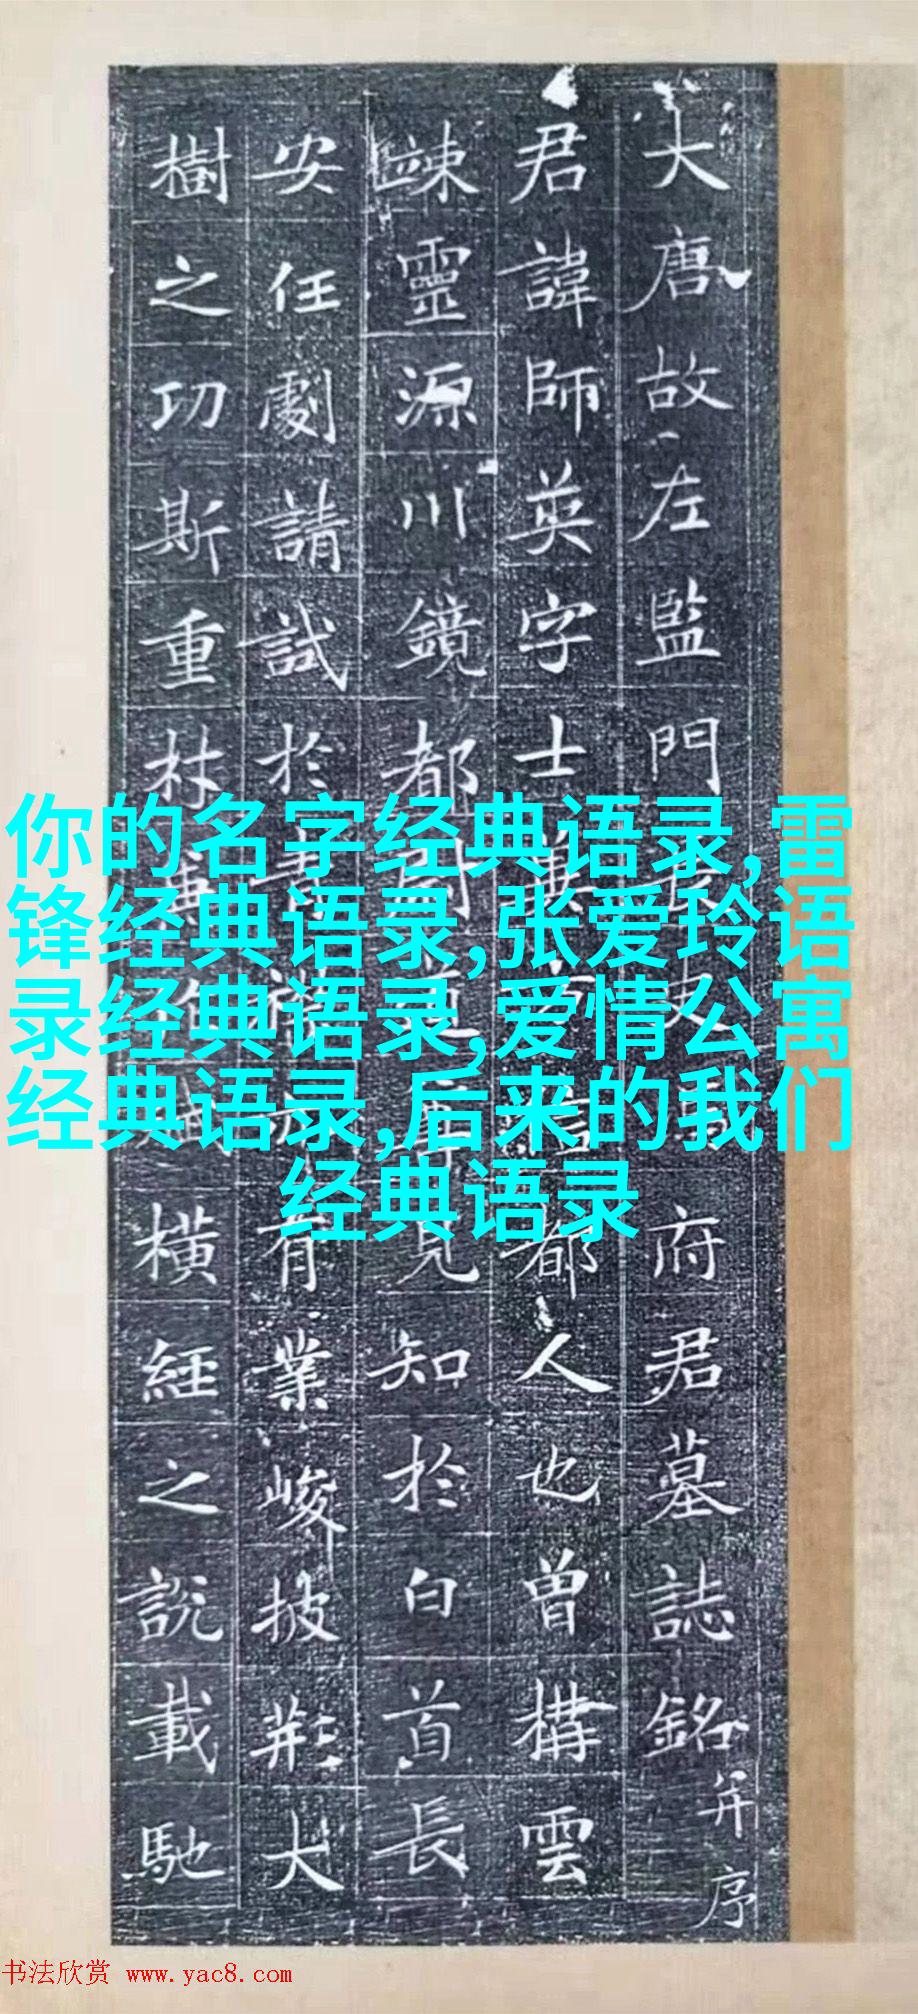 大唐故左監門府君墓誌銘并序
君諱師英字士都人也曾構雲
竦靈源川鏡都見知於白首長
安任劇請試於有業峻披荊大
樹之功斯重橫經之說載馳
你的名字经典语录,雷
锋经典语录,张爱玲语
录经典语录,爱情公寓
经典语录,后来的我们
经典语录
书法欣赏 www.yac8.com